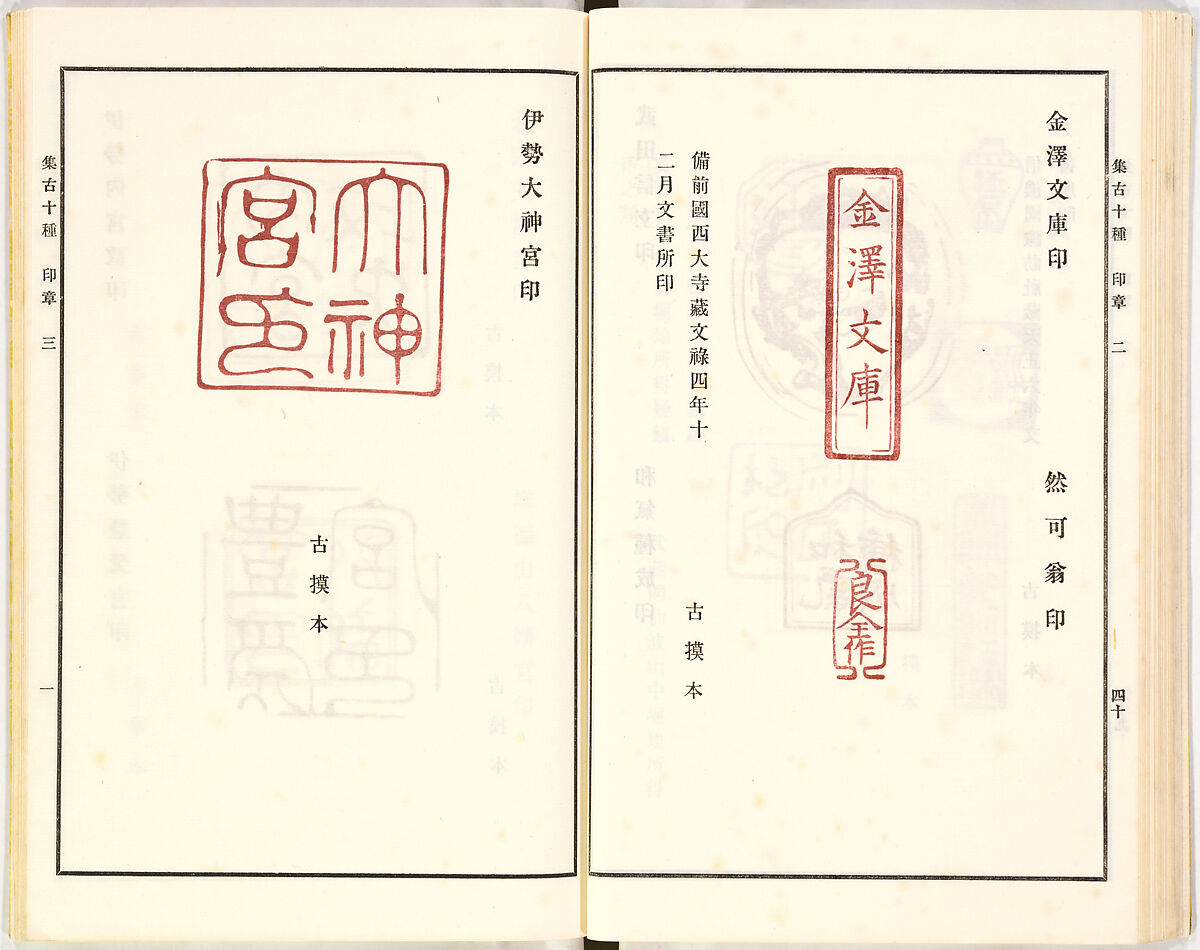 集古十種 印章 二
四十
金澤文庫印
金澤文庫
備前國西大寺藏文祿四年十
二月文書所印
然可翁印
良全作
古摸本
伊勢大神宮印
大神
宮印
古摸本
集古十種 印章 三
一